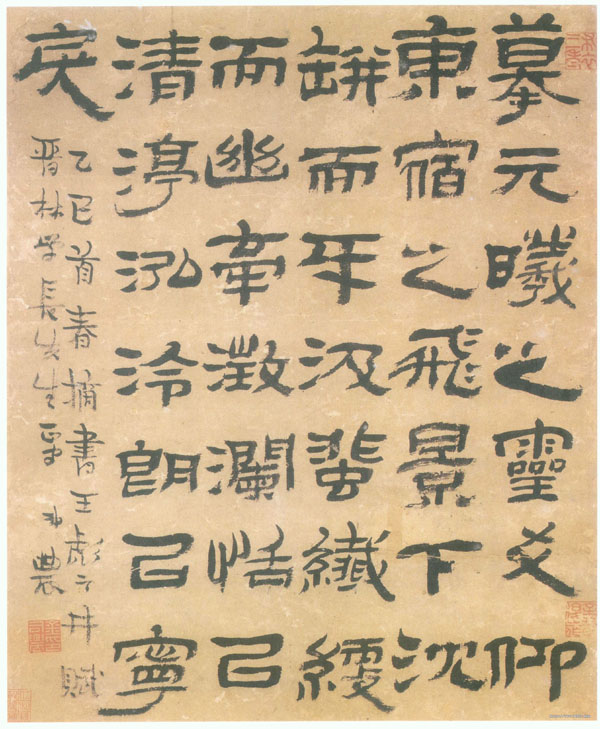 摹元曦之靈爻仰
東宿之飛景下沈
缾而牙汲蜚纖綆
而幽牽澂瀾恬㠯
清渟泓泠朗㠯寧
戾
乙巳首春摘書王彪之井賦
晋林學長先生正 農